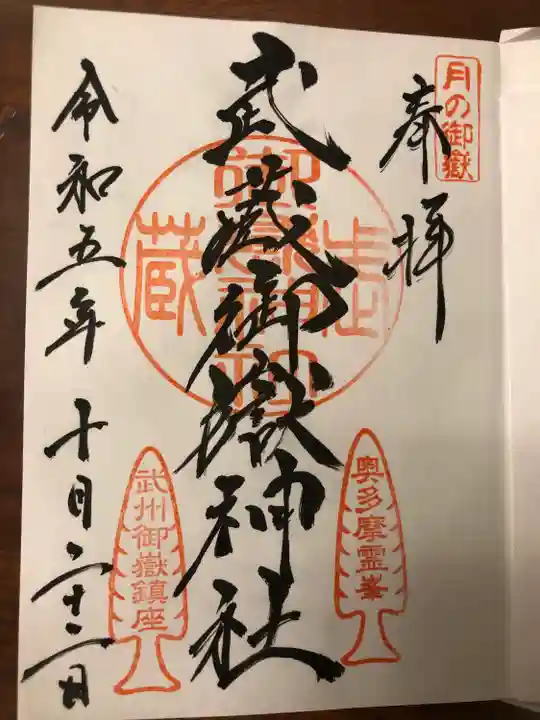 月の御嶽
奉拝
奥多摩霊峯
武蔵御嶽神社
武蔵御嶽神社
武州御嶽鎮座
令和五年十月二十二日